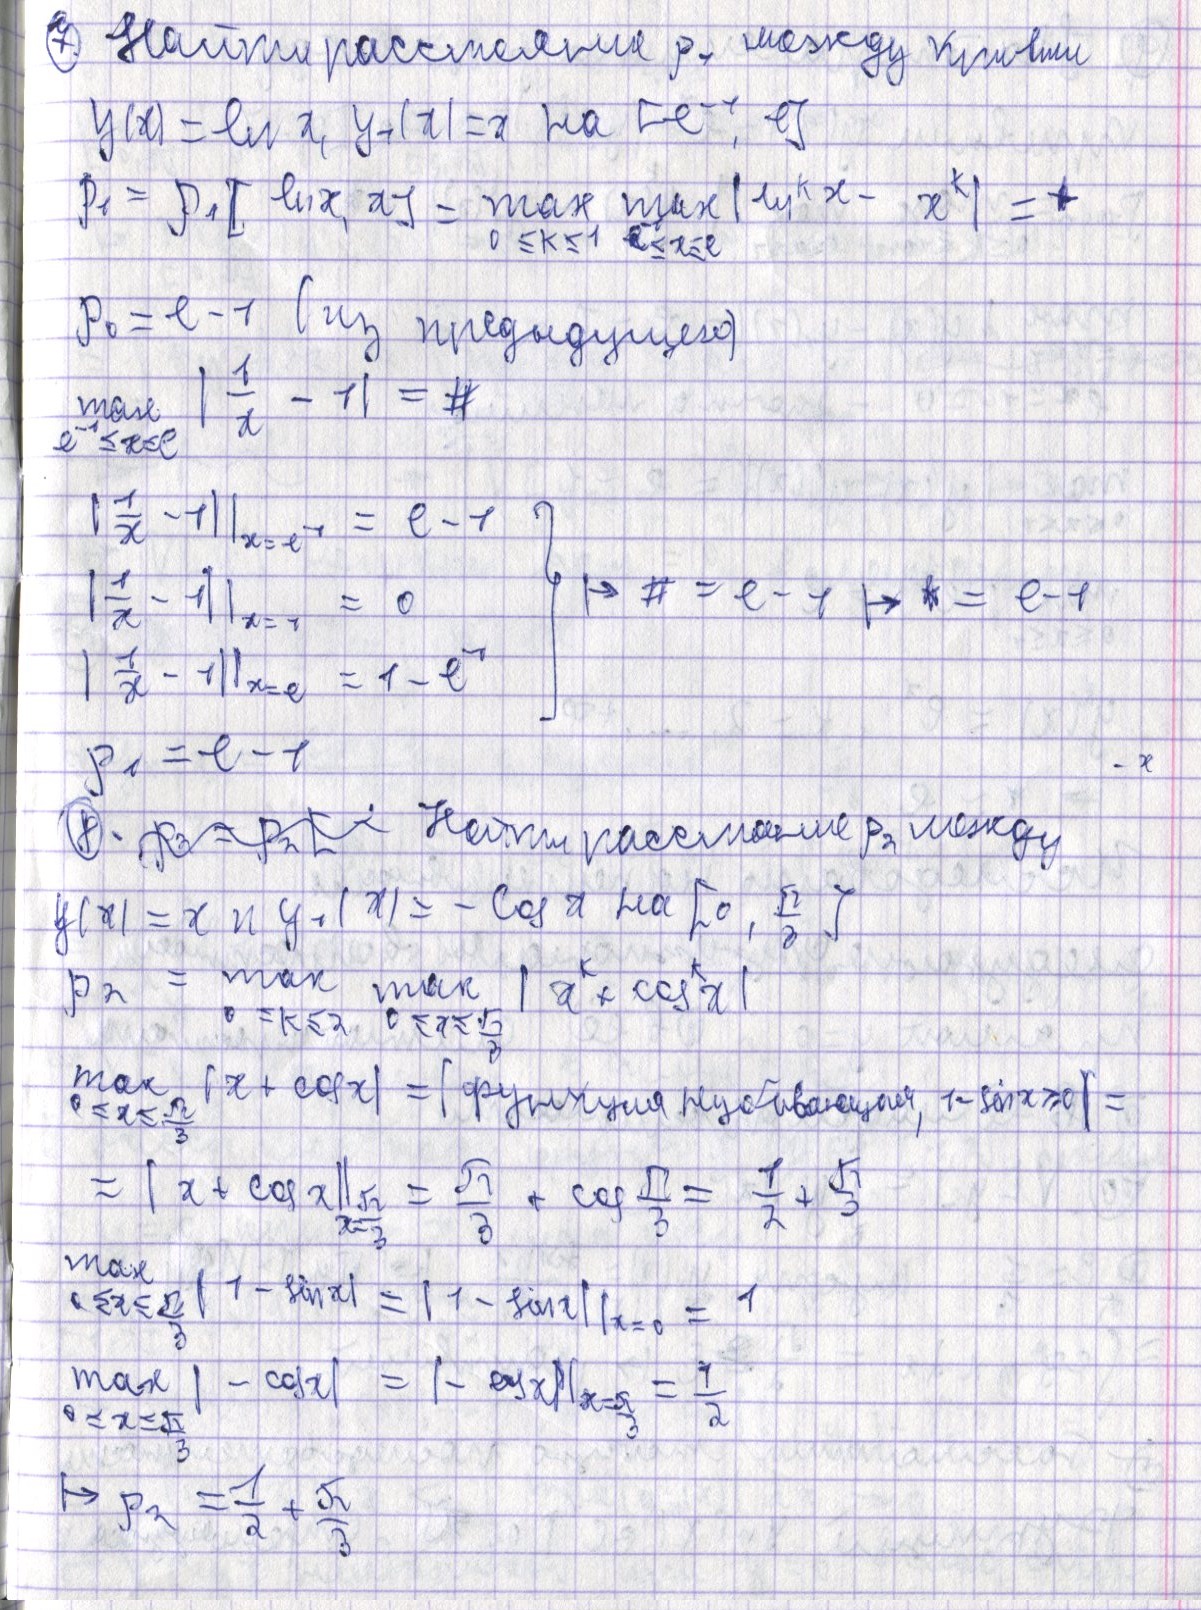 7. Найти расстояние ρ₁ между кривыми
y(x) = ln x, y₁(x) = x на [e⁻¹, e]
ρ₁ = ρ₁[ln x, x] = max 0≤k≤1 max e⁻¹≤x≤e |lnᵏ x - xᵏ| = *
ρ₀ = e - 1 (из предыдущего)
max e⁻¹≤x≤e |1/x - 1| = #
|1/x - 1||x=e⁻¹ = e - 1
|1/x - 1||x=1 = 0 ↦ # = e - 1 ↦ * = e - 1
|1/x - 1||x=e = 1 - e⁻¹
ρ₁ = e - 1
- x
8. Найти расстояние ρ₂ между
y(x) = x и y₁(x) = - cos x на [0, π/3]
ρ₂ = max 0≤k≤2 max 0≤x≤π/3 |xᵏ + cosᵏ x|
max 0≤x≤π/3 |x + cos x| = |функция неубывающая, 1 - sin x ≥ 0| =
= |x + cos x||x=π/3 = π/3 + cos π/3 = 1/2 + π/3
max 0≤x≤π/3 |1 - sin x| = |1 - sin x||x=0 = 1
max 0≤x≤π/3 |- cos x| = |- cos x||x=π/3 = 1/2
↦ ρ₂ = 1/2 + π/3